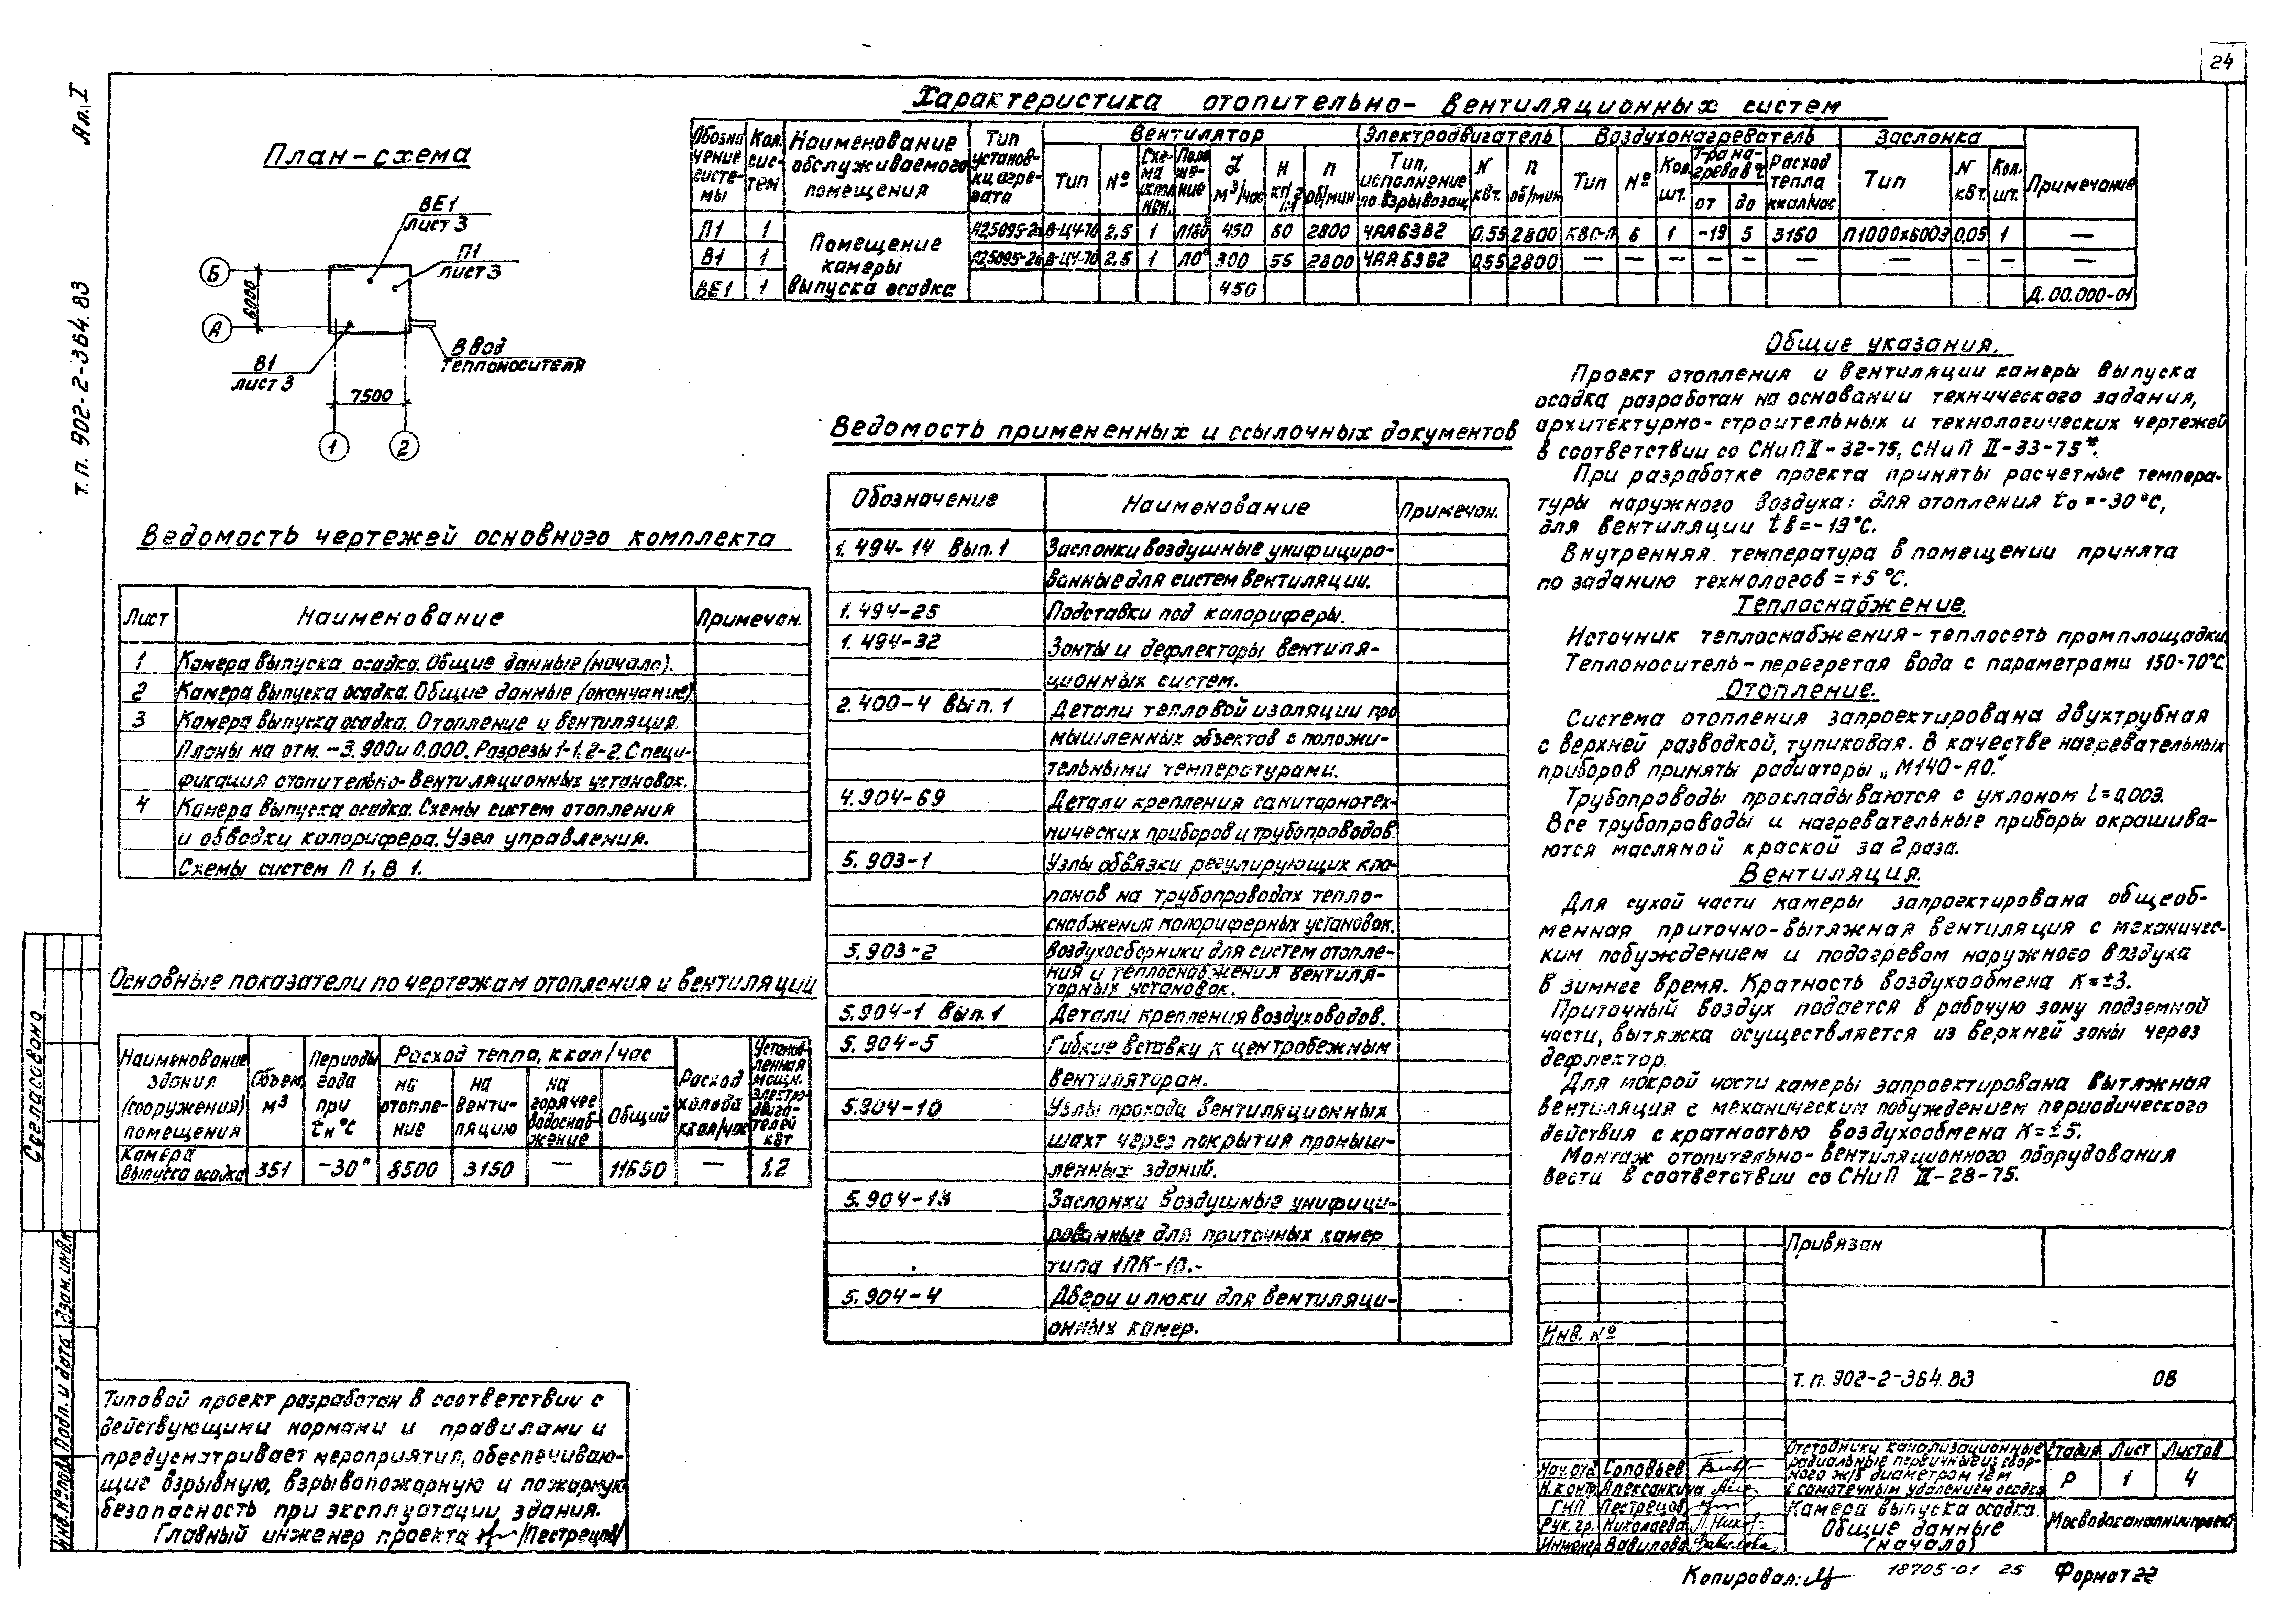 24
Ал. I
т. п. 902-2-364.83
План-схема
ВЕ1
лист 3
П1
лист 3
Б
6000
А
В1
лист 3
Ввод
теплоносителя
7500
1
2
Характеристика отопительно-вентиляционных систем
Обозначение системы
Кол. систем
Наименование обслуживаемого помещения
Тип установки агрегата
Вентилятор
Тип
№
Схема исполнен.
Положение
L м³/час
Н
n об/мин
Электродвигатель
Тип, исполнение по взрывозащ.
N квт.
n об/мин
Воздухонагреватель
Тип
№
Кол. шт.
Т-ра нагрева °С
от
до
Расход тепла ккал/час
Заслонка
Тип
N квт.
Кол. шт.
Примечание
П1 1 Помещение камеры выпуска осадка А2,5095-2а В-Ц4-70 2,5 1 450 80 2800 4АА63В2 0,55 2800 КВС-П 6 1 -19 5 3150 П1000х600Э 0,05 1 —
В1 1 А2,5095-2а В-Ц4-70 2,5 1 Л0° 300 55 2800 4АА63В2 0,55 2800 — — — — — — — — — —
ВЕ1 1 450 Д.00.000-01
Ведомость чертежей основного комплекта
Лист Наименование Примечан.
1 Камера выпуска осадка. Общие данные (начало).
2 Камера выпуска осадка. Общие данные (окончание).
3 Камера выпуска осадка. Отопление и вентиляция.
Планы на отм. -3.900 и 0.000. Разрезы 1-1, 2-2. Специ-
фикация отопительно-вентиляционных установок.
4 Камера выпуска осадка. Схемы систем отопления
и обводки калорифера. Узел управления.
Схемы систем П 1, В 1.
Основные показатели по чертежам отопления и вентиляции
Наименование здания (сооружения) помещения
Объем м³
Периоды года при tн °С
Расход тепла, ккал/час
на отопление
на вентиляцию
на горячее водоснабжение
Общий
Расход холода ккал/час
Установленная мощн. электродвигателей квт
Камера
выпуска осадка 351 -30° 8500 3150 — 11650 — 1.2
Типовой проект разработан в соответствии с
действующими нормами и правилами и
предусматривает мероприятия, обеспечиваю-
щие взрывную, взрывопожарную и пожарную
безопасность при эксплуатации здания.
Главный инженер проекта /Пестрецов/
Ведомость примененных и ссылочных документов
Обозначение Наименование Примечан.
1. 494-14 вып. 1 Заслонки воздушные унифициро-
ванные для систем вентиляции.
1. 494-25 Подставки под калориферы.
1. 494-32 Зонты и дефлекторы вентиля-
ционных систем.
2. 400-4 вып. 1 Детали тепловой изоляции про
мышленных объектов с положи-
тельными температурами.
4. 904-69 Детали крепления санитарнотех-
нических приборов и трубопроводов.
5. 903-1 Узлы обвязки регулирующих кла-
панов на трубопроводах тепло-
снабжения калориферных установок.
5. 903-2 Воздухосборники для систем отопле-
ния и теплоснабжения вентиля-
торных установок.
5. 904-1 вып. 1 Детали крепления воздуховодов.
5. 904-5 Гибкие вставки к центробежным
вентиляторам.
5.904-10 Узлы прохода вентиляционных
шахт через покрытия промыш-
ленных зданий.
5. 904-13 Заслонки воздушные унифици-
рованные для приточных камер
типа 1ПК-10.-
5. 904-4 Двери и люки для вентиляци-
онных камер.
Общие указания.
Проект отопления и вентиляции камеры выпуска
осадка разработан на основании технического задания,
архитектурно-строительных и технологических чертежей
в соответствии со СНиП II-32-75, СНиП II-33-75*.
При разработке проекта приняты расчетные темпера-
туры наружного воздуха: для отопления tо = -30°С,
для вентиляции tв = -19°С.
Внутренняя температура в помещении принята
по заданию технологов = +5°С.
Теплоснабжение.
Источник теплоснабжения - теплосеть промплощадки.
Теплоноситель - перегретая вода с параметрами 150-70°С.
Отопление.
Система отопления запроектирована двухтрубная
с верхней разводкой, тупиковая. В качестве нагревательных
приборов приняты радиаторы „М140-АО."
Трубопроводы прокладываются с уклоном i=0,003.
Все трубопроводы и нагревательные приборы окрашива-
ются масляной краской за 2 раза.
Вентиляция.
Для сухой части камеры запроектирована общеоб-
менная приточно-вытяжная вентиляция с механичес-
ким побуждением и подогревом наружного воздуха
в зимнее время. Кратность воздухообмена К=±3.
Приточный воздух подается в рабочую зону подземной
части, вытяжка осуществляется из верхней зоны через
дефлектор.
Для мокрой части камеры запроектирована вытяжная
вентиляция с механическим побуждением периодического
действия с кратностью воздухообмена К=±5.
Монтаж отопительно-вентиляционного оборудования
вести в соответствии со СНиП III-28-75.
Привязан
Инв. №
т. п. 902-2-364.83 ОВ
Отстойники канализационные
радиальные первичные из сбор-
ного ж/б диаметром 18 м
с самотечным удалением осадка
Стадия Лист Листов
Р 1 4
Камера выпуска осадка.
Общие данные
(начало)
Мосводоканалниипроект
Нач. отд. Соловьев
Н. контр. Алексанкина
ГИП Пестрецов
Рук. гр. Николаева
Инженер Вавилова
Согласовано
Инв. № подл. Подп. и дата Взам. инв. №
Копировал:
18705-01 25
Формат 22